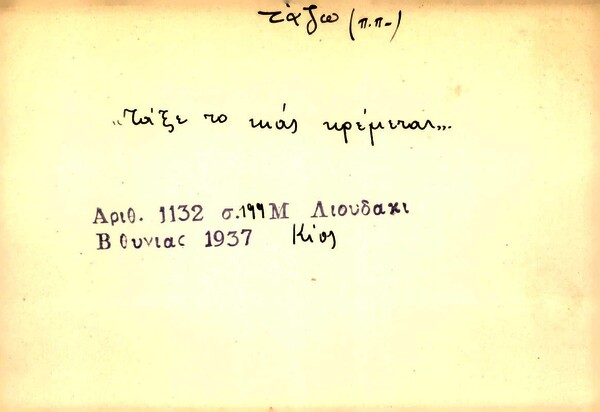 τάζω (π.π-)
„Τάξε το κιάς κρέμεται„.
Αριθ. 1132 σ.199 Μ Λιουδακι
Β θυνιας 1937 Κίος